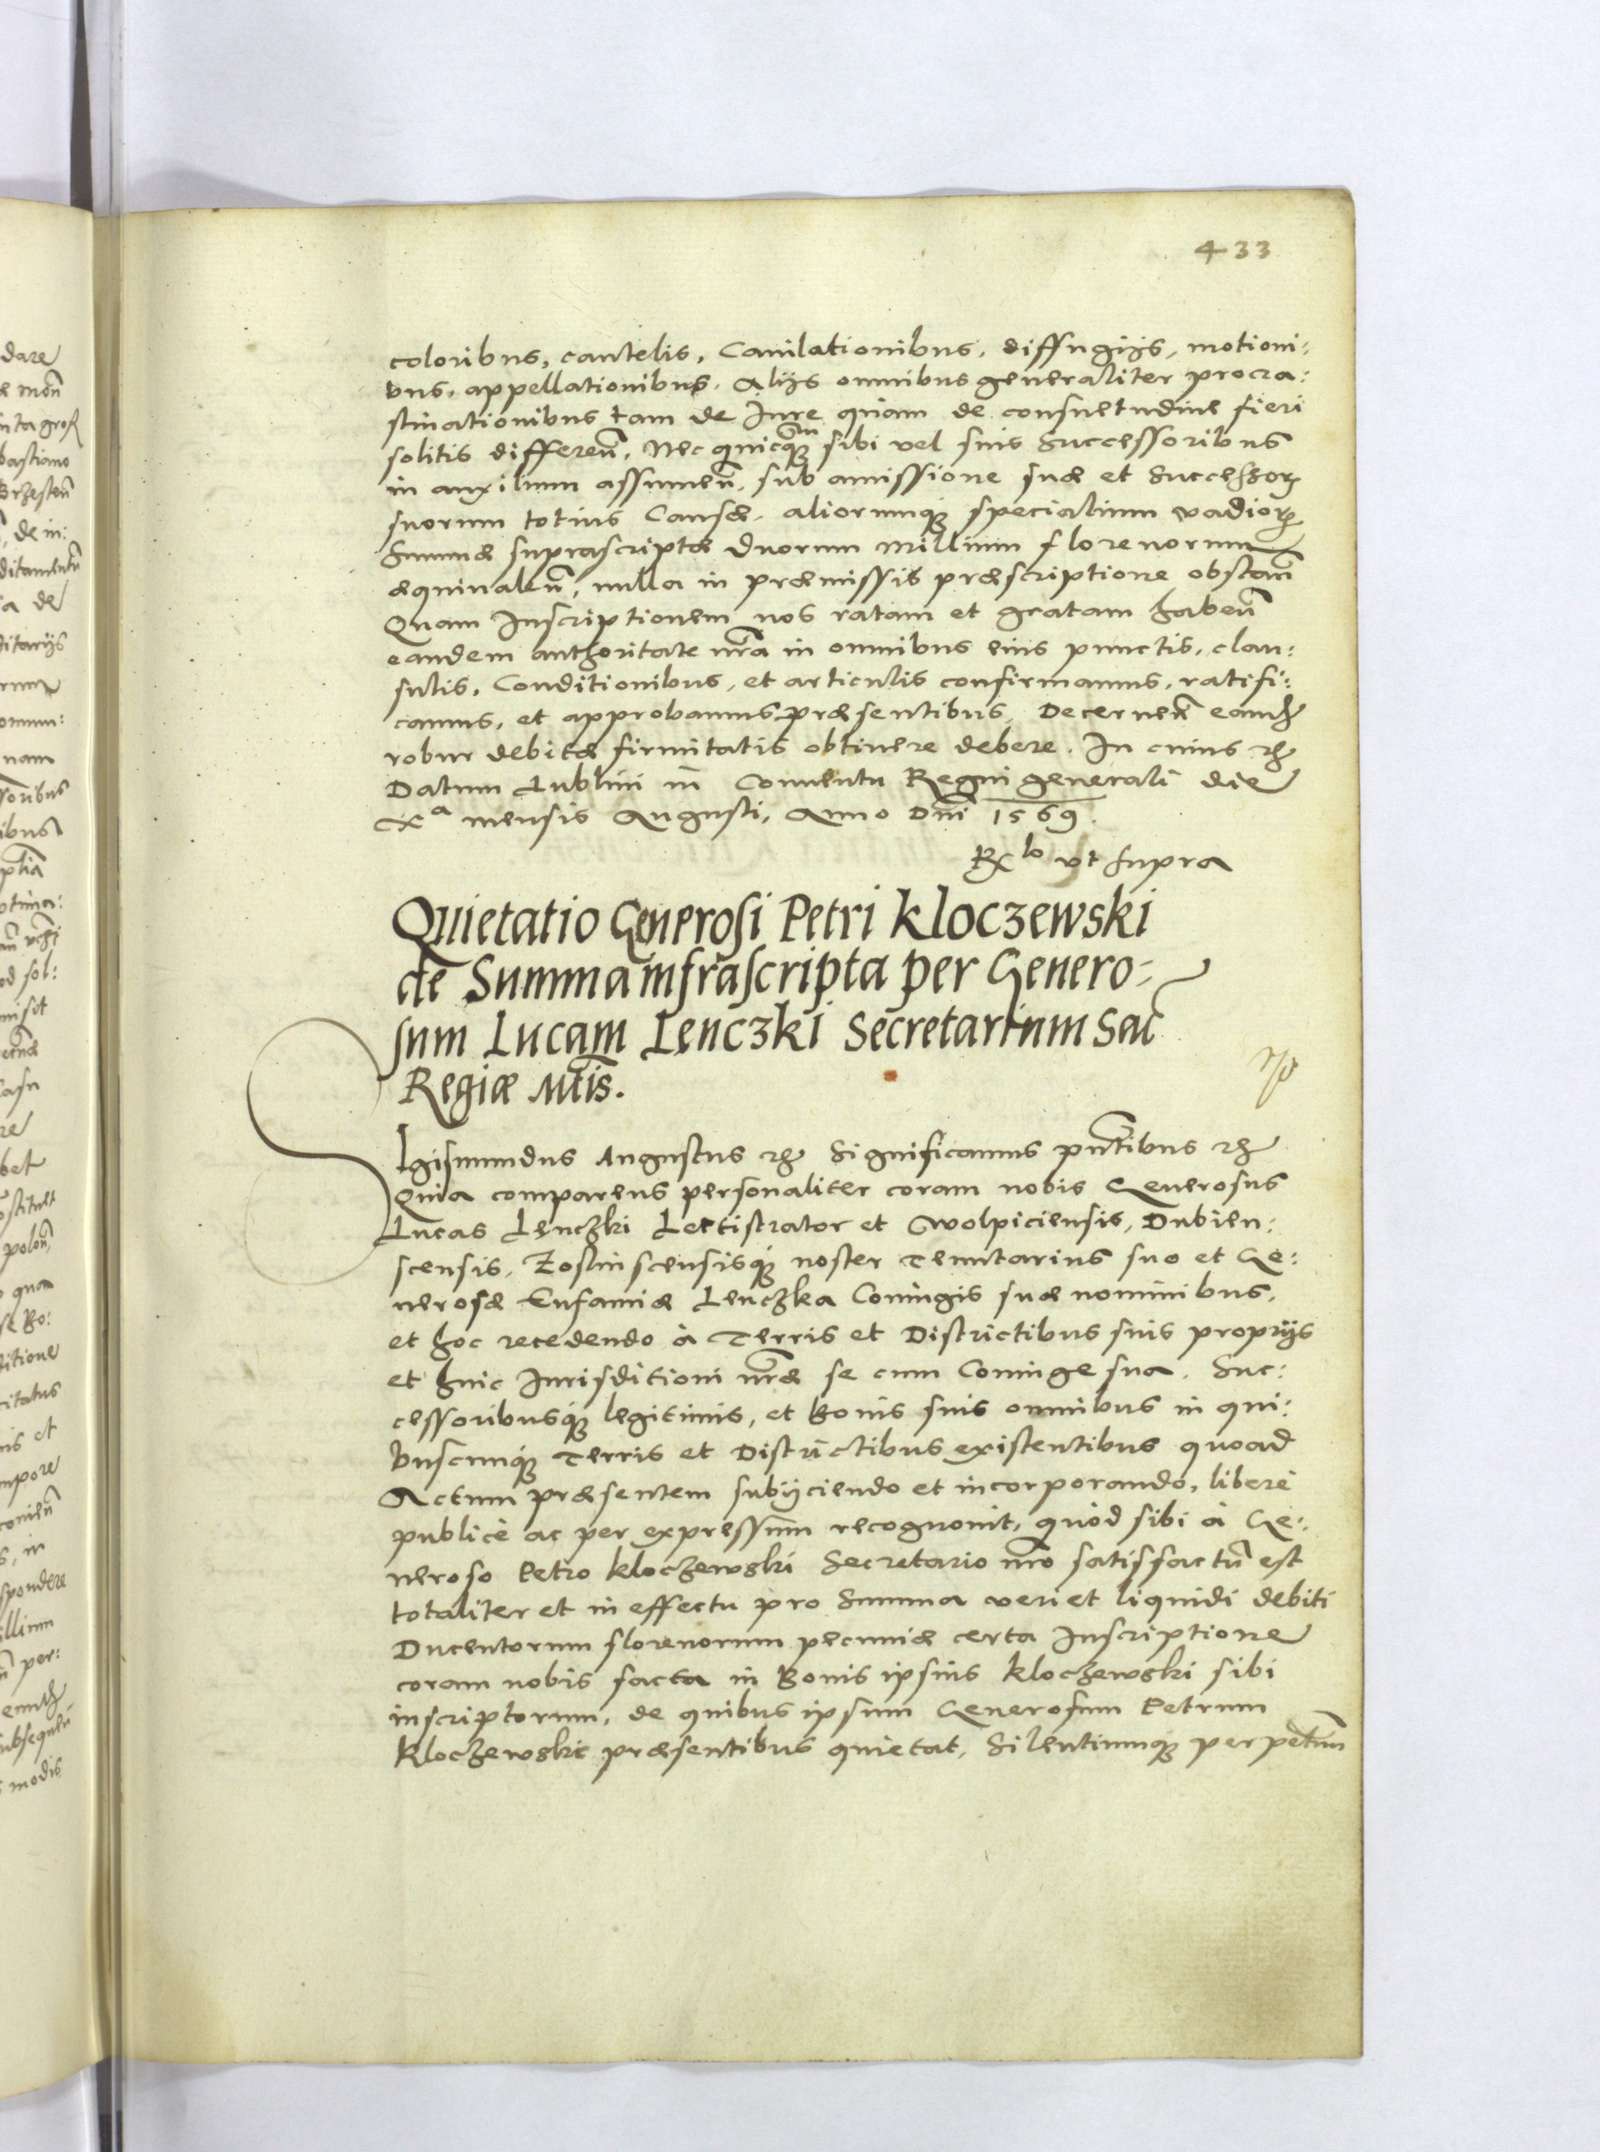 433
coloribus, cautelis, Cauilationibus, diffugijs, motioni:
bus, appellationibus. Alijs omnibus generaliter procra:
stinationibus tam de Jure quam de consuetudine fieri
solitis differeñ, Nec quicq̃ȝ sibi vel suis Successoribus
in auxilium assumeñ, sub amissione suæ et Successorꝝ
suorum totius Causæ, aliorumqȝ specialium vadiorꝝ
Summæ suprascriptæ Duorum Millium florenorum
æquiualeñ, nulla in præmissis præscriptione obstañ
Quam Inscriptionem nos ratam et gratam habeñ
eandem authoritate nrã in omnibus eius punctis, clau:
sulis, Conditionibus, et articulis confirmamus, ratifi:
camus, et approbamus præsentibus, Decerneñ eamqȝ
robur debitæ firmitatis obtinere debere. In cuius rȝ
Datum Lublini in Conuentu Regni generali die
Xª mensis Augusti, Anno Dñi 1569.
Rlo vt supra
Quietatio Generosi Petri Kloczewski
de Summa infrascripta per Genero-
sum Lucam Lenczki Secretarium Sac
Regiæ Mtis.
Sigismundus Augustus rȝ Significamus pñtibus rȝ
Quia comparens personaliter coram nobis Generosus
Lucas Lenczki Lectistrator et Wolpiciensis, Dubien:
scensis, Zoslinscensisqȝ noster Tenutarius suo et Ge:
nerosæ Eufamiæ Lenczka Coniugis suæ nominibus,
et hoc recedendo à Terris et Districtibus suis proprijs
et huic Jurisditioni nr̃æ se cum Coniuge sua, Suc:
cessoribusqȝ legitimis, et Bonis suis omnibus in qui:
buscunqȝ Terris et Districtibus existentibus quoad
Actum præsentem subijciendo et incorporando, liberè
publicè ac per expressum recognouit, quòd sibi à Ge:
neroso Petro Kloczewski Secretario nr̃o satisfactũ est
totaliter et in effectu pro Summa veri et liquidi debiti
Ducentorum florenorum pecuniæ certa Inscriptione
coram nobis facta in Bonis ipsius Kloczewski sibi
inscriptorum, de quibus ipsum Generosum Petrum
Kloczewski præsentibus quietat, Silentiumqȝ perpetuũ